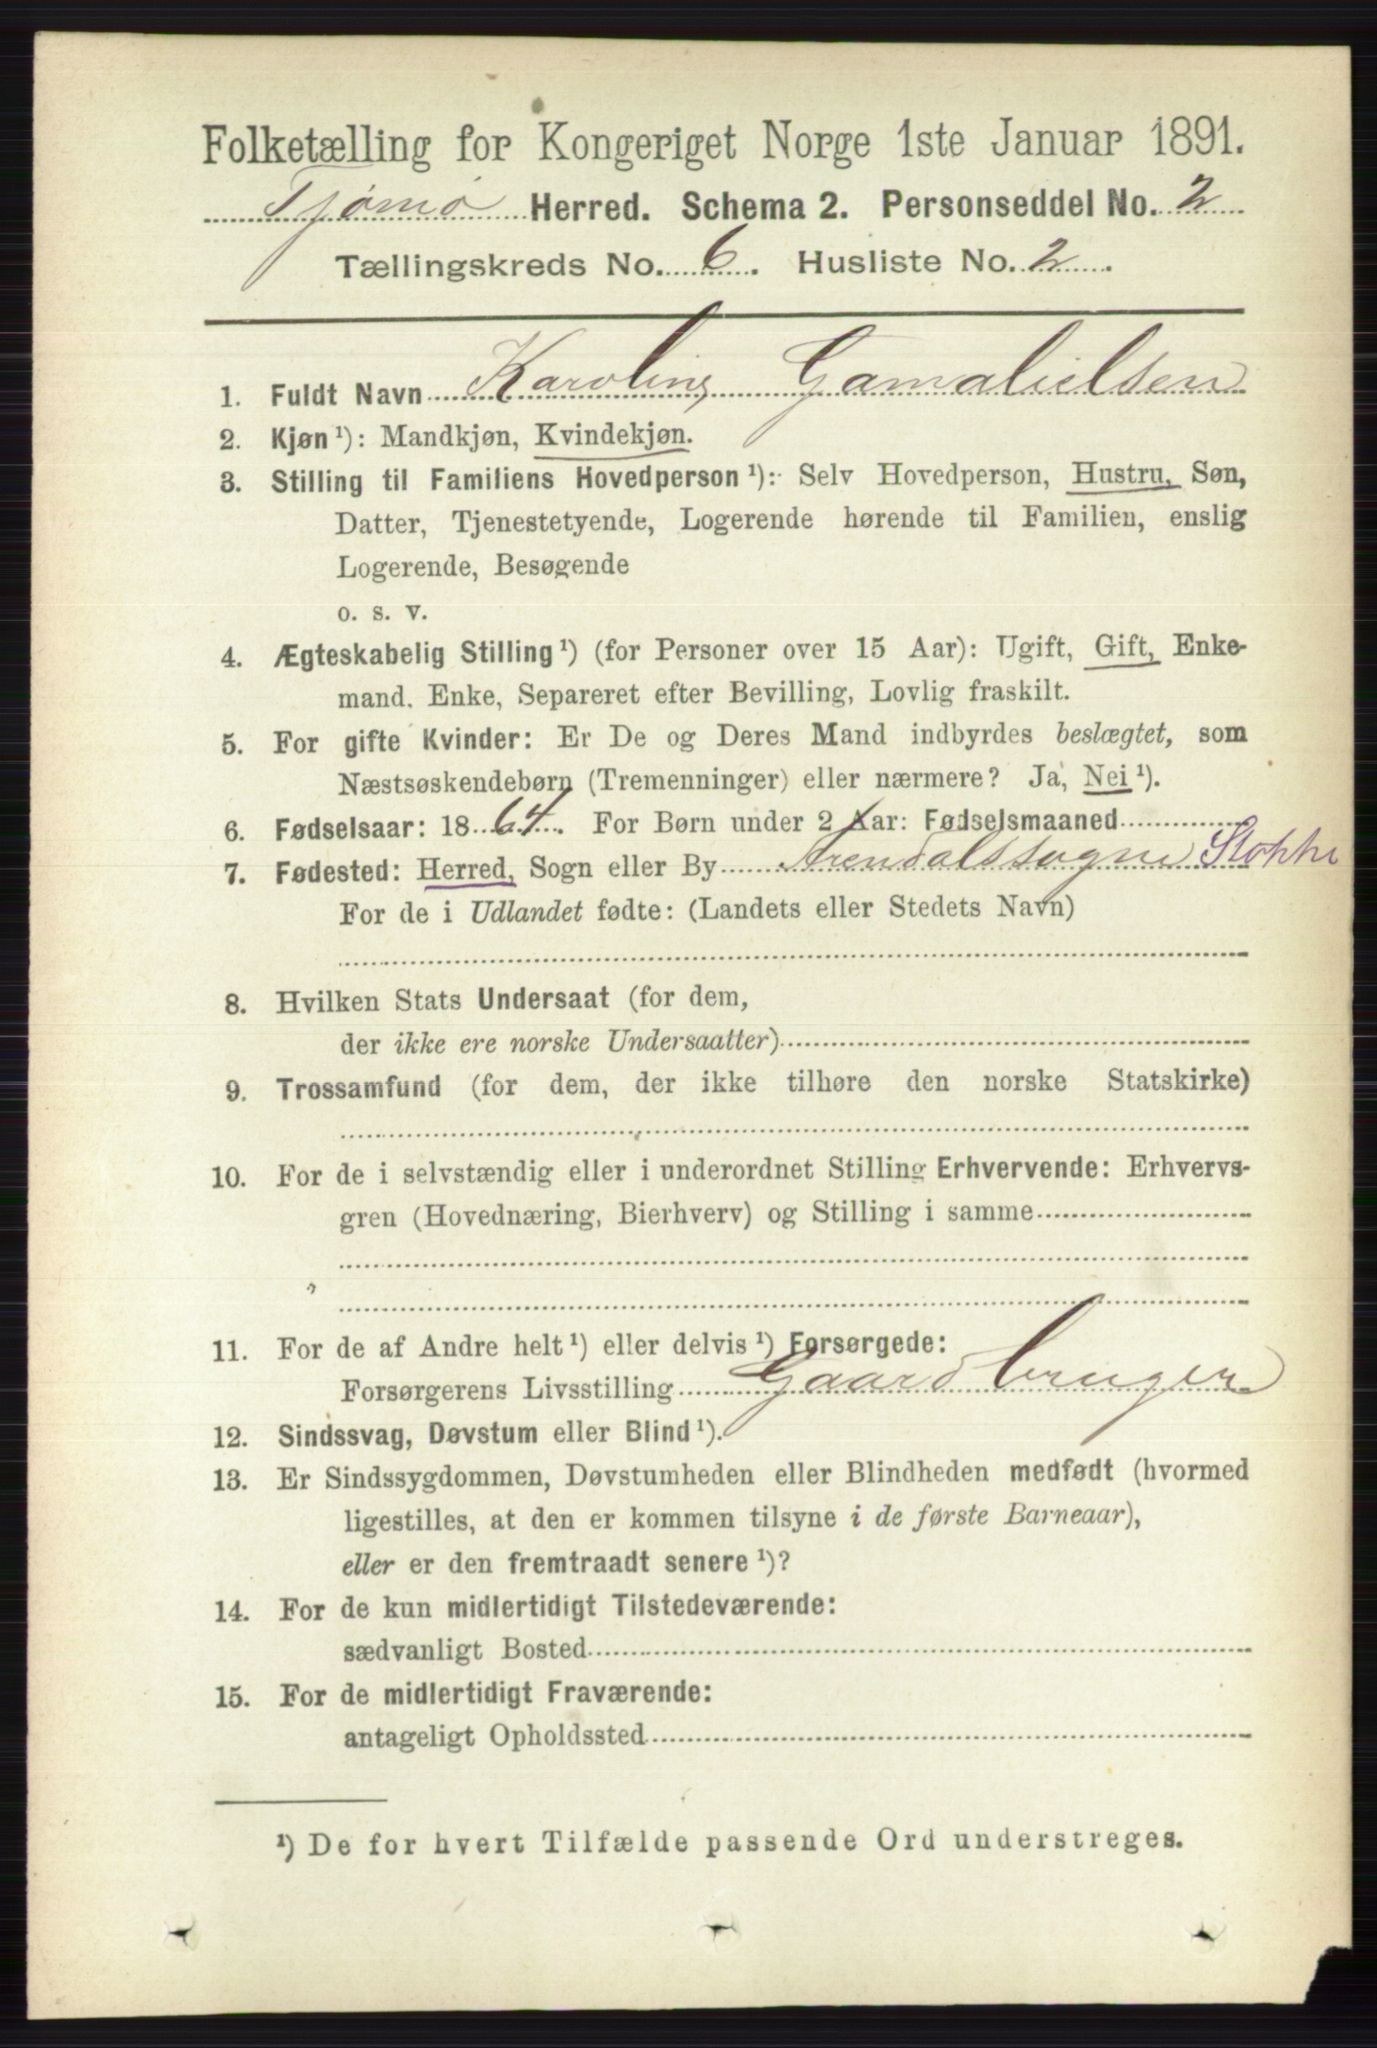 Folketælling for Kongeriget Norge 1ste Januar 1891.
Tjømø Herred. Schema 2. Personseddel No. 2
Tællingskreds No. 6. Husliste No. 2.
1. Fuldt Navn Karoline Gamalielsen
2. Kjøn¹): Mandkjøn, Kvindekjøn.
3. Stilling til Familiens Hovedperson¹): Selv Hovedperson, Hustru, Søn,
Datter, Tjenestetyende, Logerende hørende til Familien, enslig
Logerende, Besøgende
o. s. v.
4. Ægteskabelig Stilling¹) (for Personer over 15 Aar): Ugift, Gift, Enke-
mand. Enke, Separeret efter Bevilling, Lovlig fraskilt.
5. For gifte Kvinder: Er De og Deres Mand indbyrdes beslægtet, som
Næstsøskendebørn (Tremenninger) eller nærmere? Ja, Nei¹).
6. Fødselsaar: 1864. For Børn under 2 Aar: Fødselsmaaned
7. Fødested: Herred, Sogn eller By Arendalssogne Stokke
For de i Udlandet fødte: (Landets eller Stedets Navn)
8. Hvilken Stats Undersaat (for dem,
der ikke ere norske Undersaatter)
9. Trossamfund (for dem, der ikke tilhøre den norske Statskirke)
10. For de i selvstændig eller i underordnet Stilling Erhvervende: Erhvervs-
gren (Hovednæring, Bierhverv) og Stilling i samme
11. For de af Andre helt¹) eller delvis¹) Forsørgede:
Forsørgerens Livsstilling Gaardbruger
12. Sindssvag, Døvstum eller Blind¹).
13. Er Sindssygdommen, Døvstumheden eller Blindheden medfødt (hvormed
ligestilles, at den er kommen tilsyne i de første Barneaar),
eller er den fremtraadt senere¹)?
14. For de kun midlertidigt Tilstedeværende:
sædvanligt Bosted
15. For de midlertidigt Fraværende:
antageligt Opholdssted
¹) De for hvert Tilfælde passende Ord understreges.